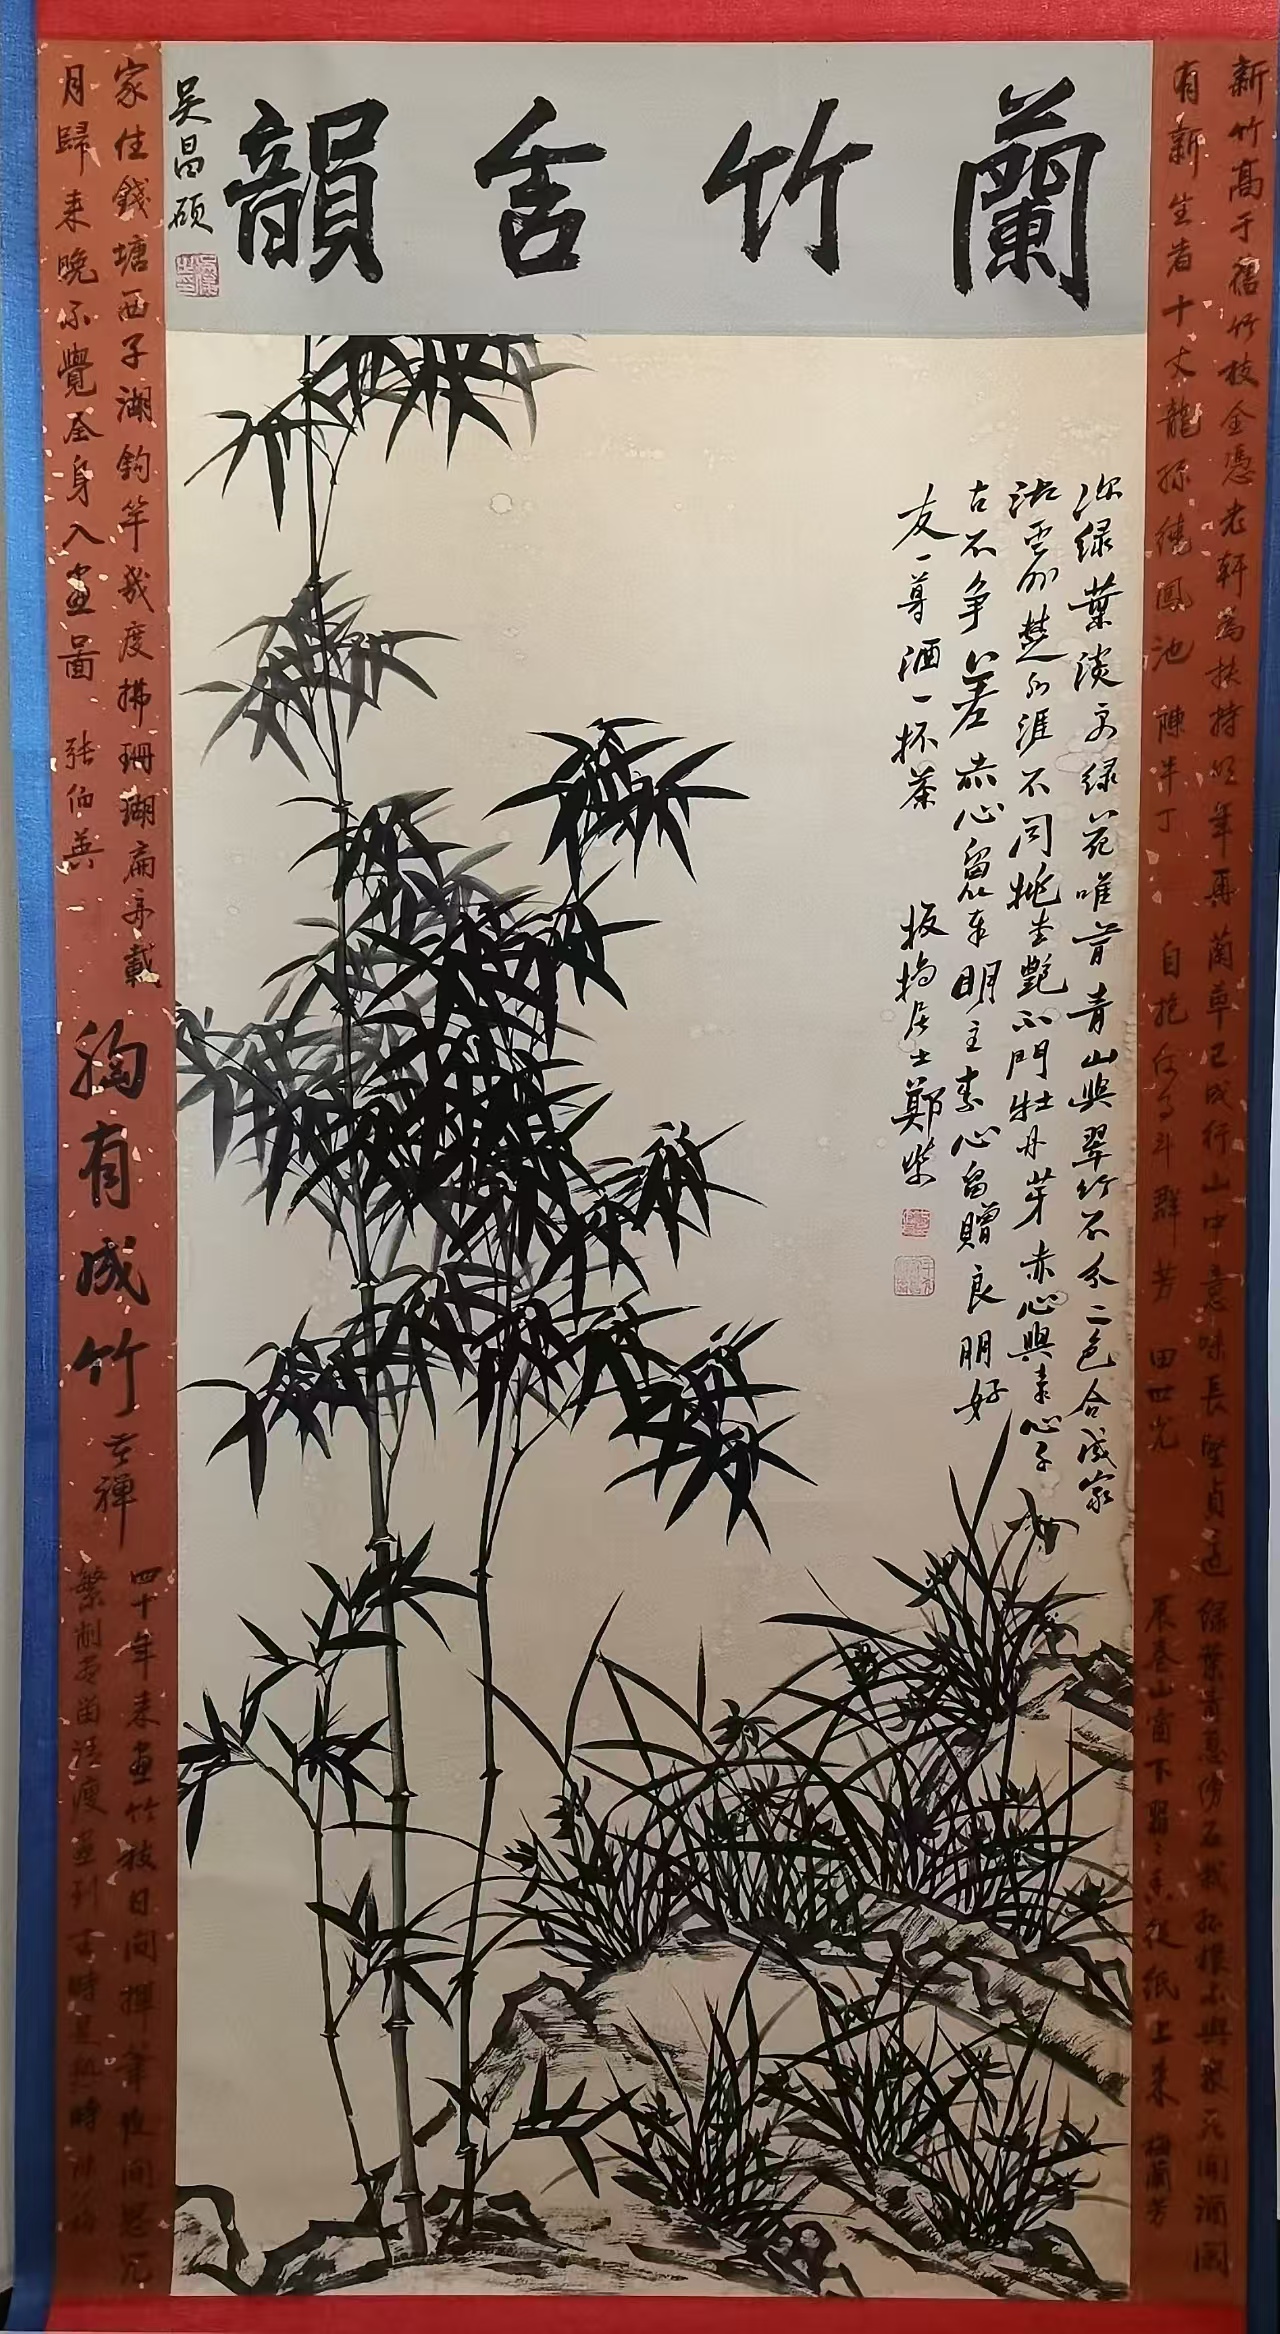 蘭竹含韻
吴昌硕
新竹高于舊竹枝全憑老幹為扶持明年再
有新生者十丈龍孫繞鳳池 陳半丁
蘭草已成行山中意味長堅貞還
自抱何事斗群芳 田世光
緑葉青蔥傍石栽孤根不與衆花開酒闌
展卷山窗下習習香從紙上來 梅蘭芳
深緑葉淡方緑花唯首青山與翠竹不分二色合成家
湘雲外楚水涯不同桃杏艷不鬥牡丹芽赤心與素心千
古不争差赤心留以奉明主素心留贈良朋好
友一尊酒一杯茶
板橋居士鄭燮
家住錢塘西子湖釣竿幾度拂珊瑚扁舟載
月歸来晚不覺全身入畫圖 張伯英
胸有成竹
苦禪
四十年来畫竹枝日間揮筆夜間思冗
繁削盡留清瘦畫到生時是熟時